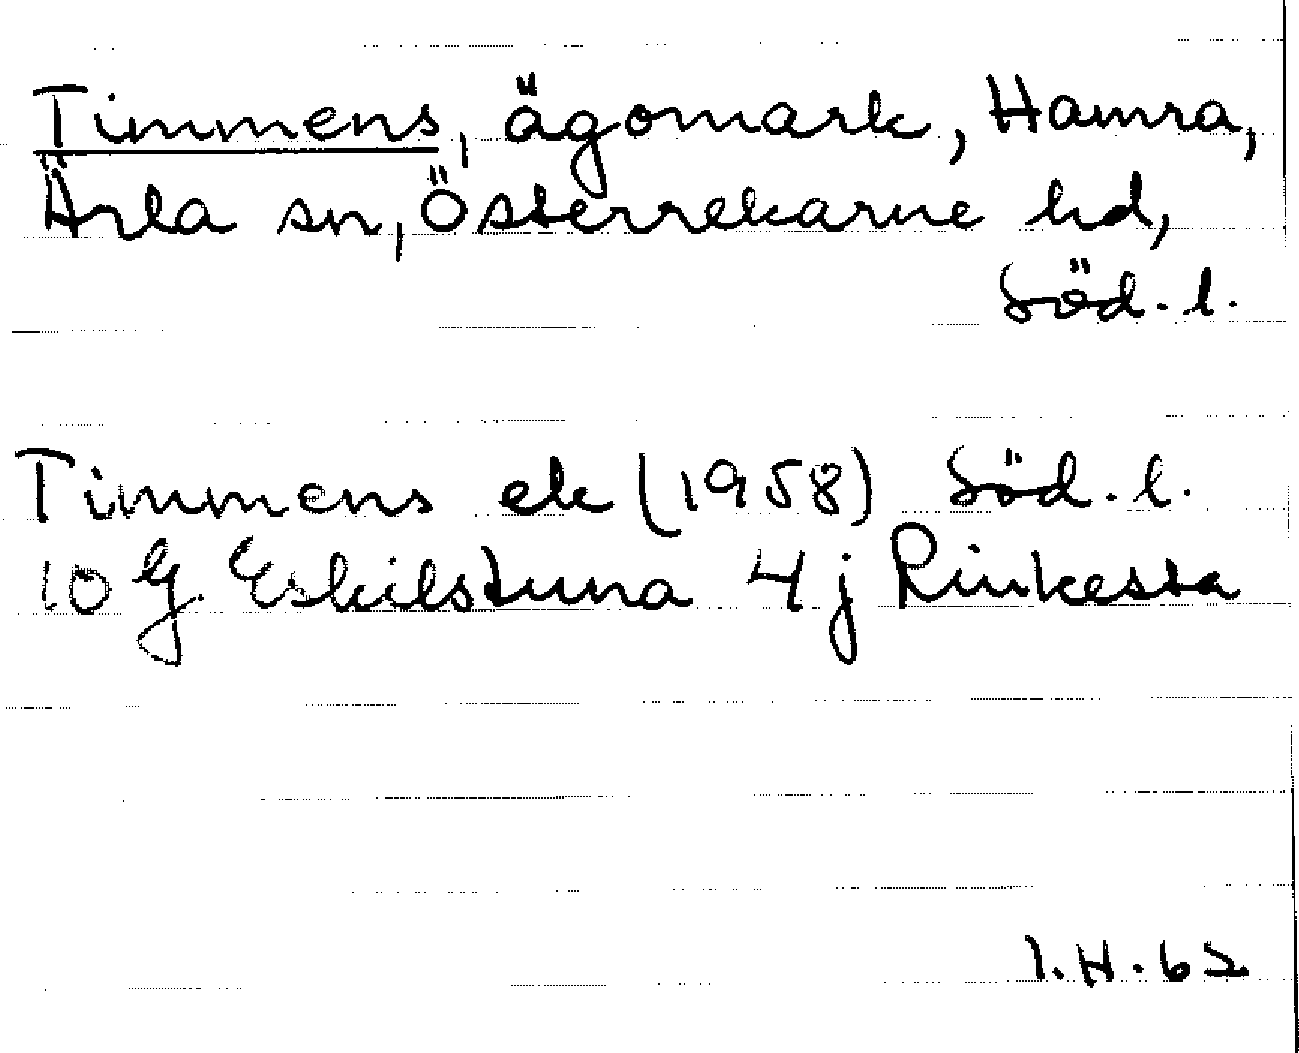 Timmens, ägomark, Hamra,
Ärla sn, Österrekarne hd,
Söd. l.
Timmens ek (1958) Söd. l.
10 G. Eskilstuna 4 j Rinkesta
I.H. 62